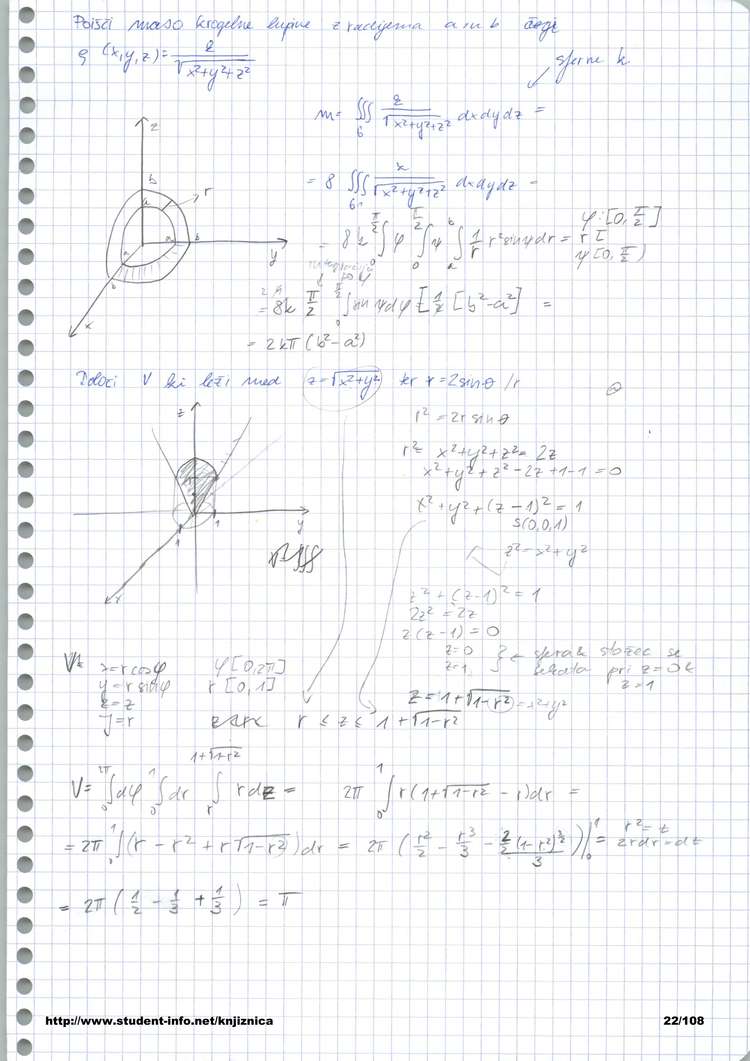 Poišči maso krogelne lupine z radijema a in b čegi
ρ (x,y,z) = k / √(x²+y²+z²)
sferne k
m = ∭_G k/√(x²+y²+z²) dxdydz =
= 8 ∭_G1 k/√(x²+y²+z²) dxdydz =
z
b
a
r
a b y
a
b
x
= 8k ∫_0^{π/2} φ ∫_0^{π/2} ψ ∫_a^b 1/r r² sin ψ dr =
φ: [0, π/2]
r [
ψ [0, π/2)
= 8k π/2 ∫_0^{π/2} sin ψ dφ [1/2 [b²-a²] =
= 2kπ (b²-a²)
Določi V ki leži med z=√(x²+y²) ter r=2sinθ /r
r² = 2r sinθ
r² = x²+y²+z² = 2z
x²+y²+z²-2z+1-1=0
x²+y²+(z-1)²=1
S(0,0,1)
z²=x²+y²
z
1 1 y
x
z²+(z-1)²=1
2z²=2z
z(z-1)=0
z=0
z=1
sfera & stožec se
sekata pri z=0 &
z=1
V=
x=r cosφ φ[0,2π]
y=r sinφ r [0,1]
z=z
J=r
z=1+√(1-r²) =x²+y²
r ≤ z ≤ 1+√(1-r²)
V= ∫_0^{2π} dφ ∫_0^1 dr ∫_r^{1+√(1-r²)} r dz = 2π ∫_0^1 r(1+√(1-r²) - r)dr =
= 2π ∫_0^1 (r - r² + r√(1-r²))dr = 2π (r²/2 - r³/3 - (2/2 (1-r²)^{3/2})/3) |_0^1 =
r²=t
2rdr=dt
= 2π (1/2 - 1/3 + 1/3) = π
http://www.student-info.net/knjiznica
22/108